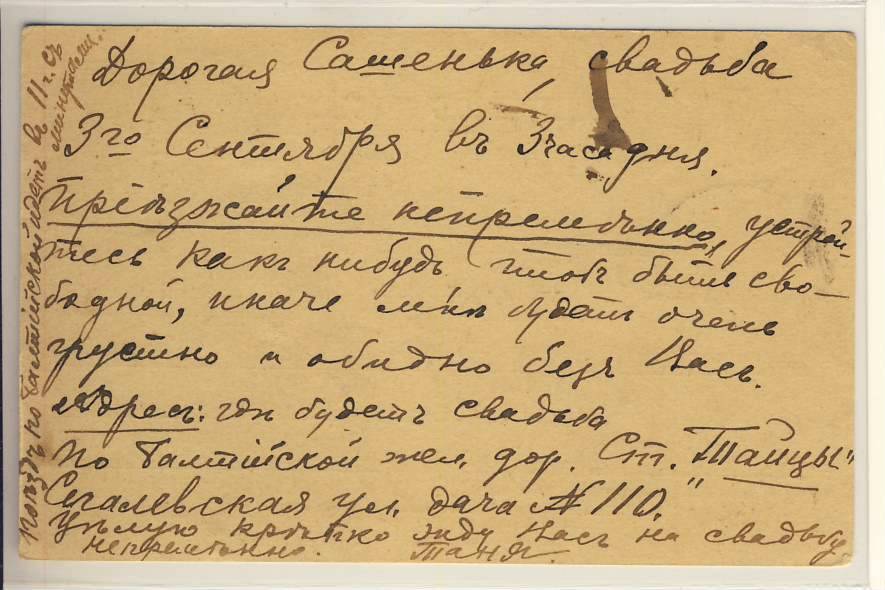 Дорогая Сашенька, свадьба
3го Сентября въ 3 часа дня.
Пріѣзжайте непремѣнно, устрой-
тесь какъ нибудь чтобъ быть сво-
бодной, иначе мнѣ будетъ очень
грустно и обидно безъ Васъ.
Адресъ: гдѣ будетъ свадьба
по Балтійской жел. дор. Ст. "Тайцы"
ская ул. дача № 110.
Цѣлую крѣпко жду Васъ на свадьбу
непремѣнно. Таня.
Поѣздъ по Балтійской идетъ въ 11 ч. съ
минутами.